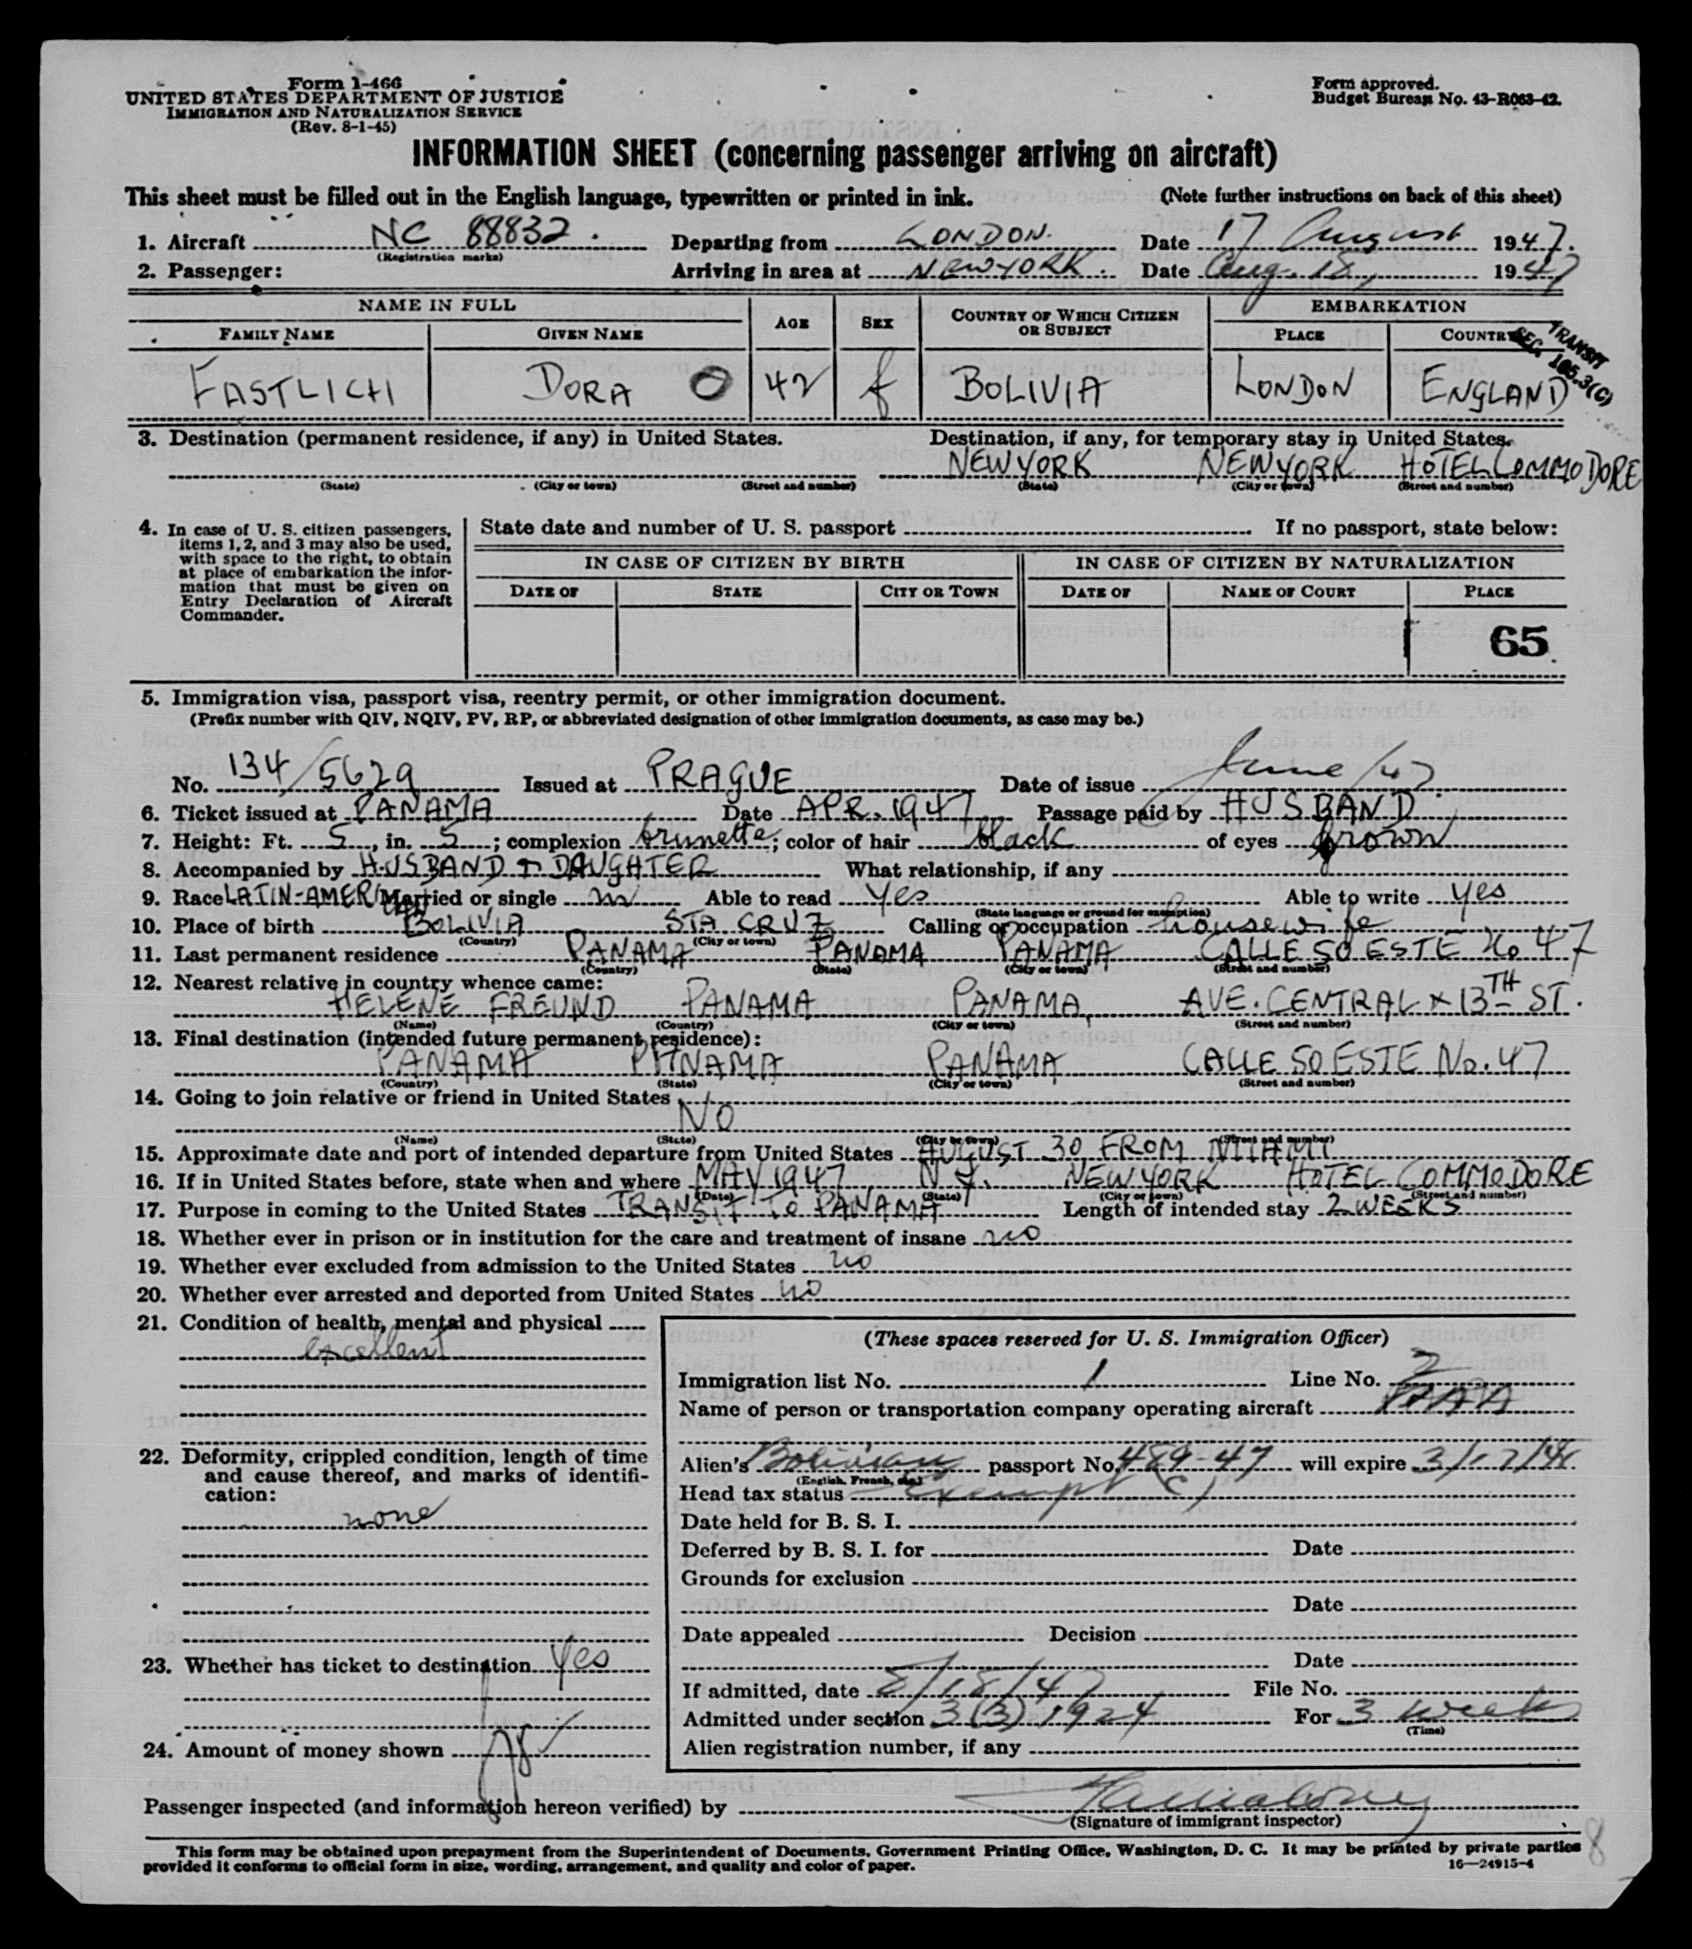 Form I-466
UNITED STATES DEPARTMENT OF JUSTICE
IMMIGRATION AND NATURALIZATION SERVICE
(Rev. 8-1-45)
Form approved.
Budget Bureau No. 43-R063-42.
INFORMATION SHEET (concerning passenger arriving on aircraft)
This sheet must be filled out in the English language, typewritten or printed in ink. (Note further instructions on back of this sheet)
1. Aircraft NC 88832. Departing from LONDON. Date 17 August 1947.
(Registration marks)
2. Passenger: Arriving in area at NEW YORK. Date Aug. 18, 1947
NAME IN FULL AGE SEX COUNTRY OF WHICH CITIZEN OR SUBJECT EMBARKATION
FAMILY NAME GIVEN NAME PLACE COUNTRY
TRANSIT
SEC. 105.3(C)
FASTLICH DORA O 42 f BOLIVIA LONDON ENGLAND
3. Destination (permanent residence, if any) in United States. Destination, if any, for temporary stay in United States.
NEW YORK NEW YORK HOTEL COMMODORE
(State) (City or town) (Street and number) (State) (City or town) (Street and number)
4. In case of U. S. citizen passengers, items 1, 2, and 3 may also be used, with space to the right, to obtain at place of embarkation the information that must be given on Entry Declaration of Aircraft Commander.
State date and number of U. S. passport If no passport, state below:
IN CASE OF CITIZEN BY BIRTH IN CASE OF CITIZEN BY NATURALIZATION
DATE OF STATE CITY OR TOWN DATE OF NAME OF COURT PLACE
65
5. Immigration visa, passport visa, reentry permit, or other immigration document.
(Prefix number with QIV, NQIV, PV, RP, or abbreviated designation of other immigration documents, as case may be.)
No. 134/5629 Issued at PRAGUE Date of issue June/47
6. Ticket issued at PANAMA Date APR. 1947 Passage paid by HUSBAND
7. Height: Ft. 5, in. 5; complexion brunette; color of hair black of eyes brown
8. Accompanied by HUSBAND + DAUGHTER What relationship, if any
9. Race LATIN-AMERICAN Married or single m Able to read yes Able to write yes
(State language or ground for exemption)
10. Place of birth BOLIVIA STA CRUZ Calling or occupation housewife
(Country) (City or town)
11. Last permanent residence PANAMA PANAMA PANAMA CALLE 50 ESTE No 47
(Country) (State) (City or town) (Street and number)
12. Nearest relative in country whence came:
HELENE FREUND PANAMA PANAMA, AVE. CENTRAL x 13TH ST.
(Name) (Country) (City or town) (Street and number)
13. Final destination (intended future permanent residence):
PANAMA PANAMA PANAMA CALLE 50 ESTE No. 47
(Country) (State) (City or town) (Street and number)
14. Going to join relative or friend in United States
NO
(Name) (State) (City or town) (Street and number)
15. Approximate date and port of intended departure from United States AUGUST 30 FROM MIAMI
16. If in United States before, state when and where MAY 1947 N.Y. NEW YORK HOTEL COMMODORE
(Date) (State) (City or town) (Street and number)
17. Purpose in coming to the United States TRANSIT TO PANAMA Length of intended stay 2 WEEKS
18. Whether ever in prison or in institution for the care and treatment of insane no
19. Whether ever excluded from admission to the United States no
20. Whether ever arrested and deported from United States no
21. Condition of health, mental and physical
excellent
22. Deformity, crippled condition, length of time and cause thereof, and marks of identification:
none
23. Whether has ticket to destination yes
24. Amount of money shown
(These spaces reserved for U. S. Immigration Officer)
Immigration list No. 1 Line No. 2
Name of person or transportation company operating aircraft PAA
Alien's Bolivian passport No. 489-47 will expire
(English, French, etc.)
Head tax status Exempt (C)
Date held for B. S. I.
Deferred by B. S. I. for Date
Grounds for exclusion
Date
Date appealed Decision
Date
If admitted, date 8/18/47 File No.
Admitted under section 3(3) 1924 For 3 weeks
(Time)
Alien registration number, if any
Passenger inspected (and information hereon verified) by
(Signature of immigrant inspector)
This form may be obtained upon prepayment from the Superintendent of Documents, Government Printing Office, Washington, D. C. It may be printed by private parties
provided it conforms to official form in size, wording, arrangement, and quality and color of paper. 16—24915-4
8